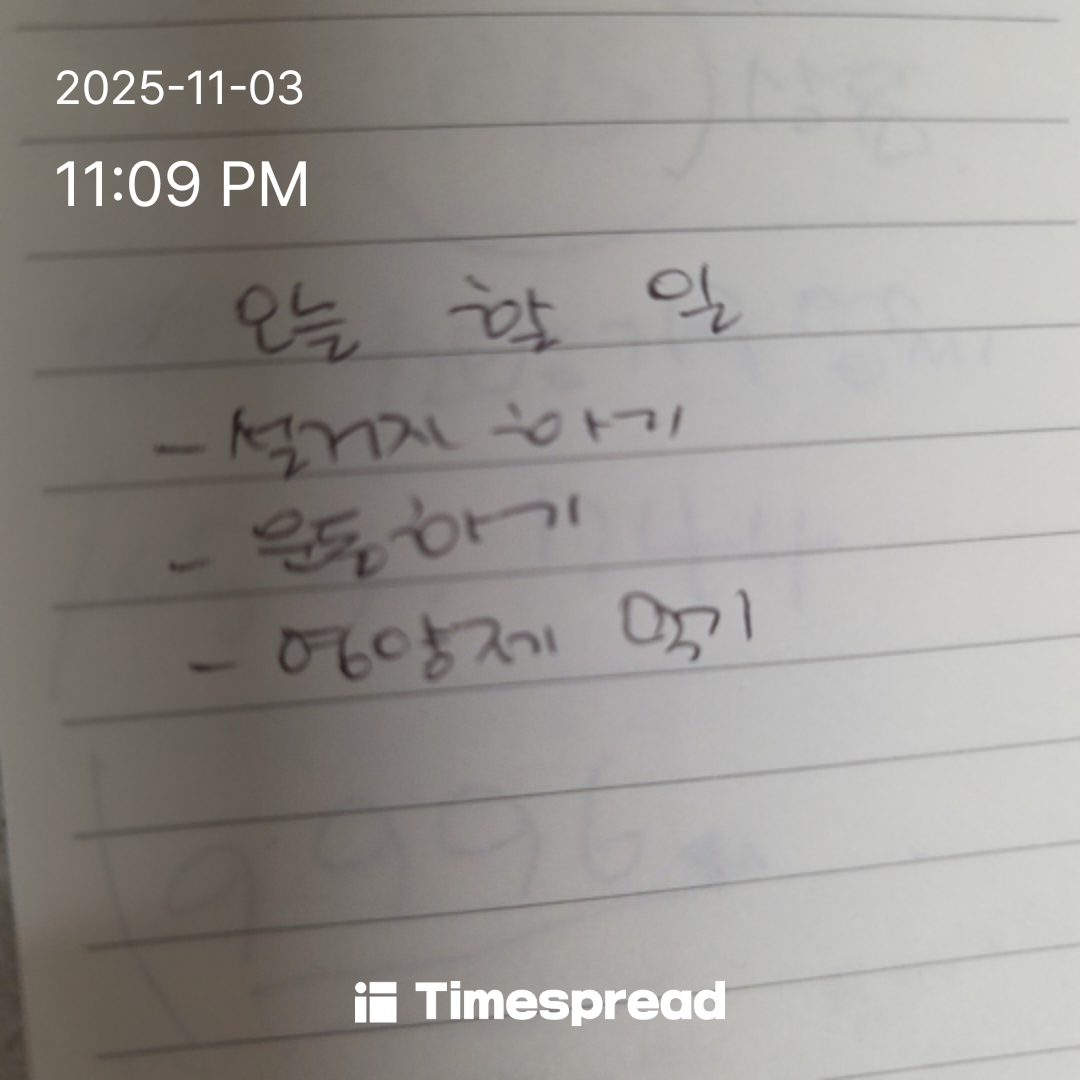 2025-11-03
11:09 PM
오늘 할 일
- 설거지 하기
- 운동하기
- 영양제 먹기
Timespread